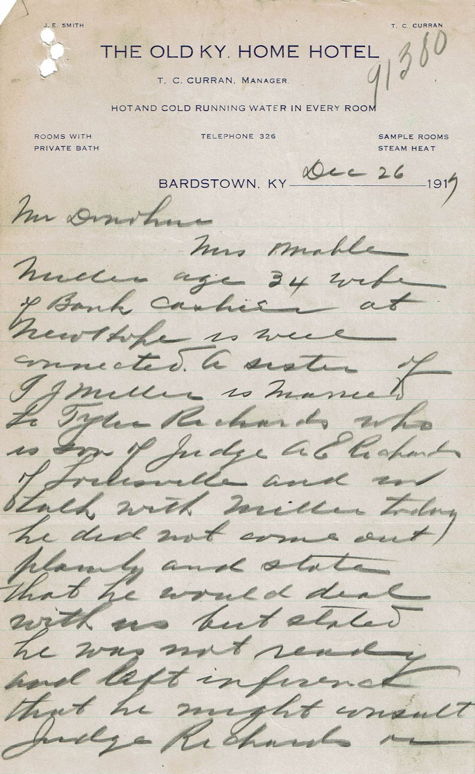 J. E. SMITH
T. C. CURRAN
THE OLD KY. HOME HOTEL
91380
T. C. CURRAN, MANAGER.
HOT AND COLD RUNNING WATER IN EVERY ROOM
ROOMS WITH
PRIVATE BATH
TELEPHONE 326
SAMPLE ROOMS
STEAM HEAT
BARDSTOWN, KY Dec 26 1917
Mr Donohue
Mrs Mable
Miller age 34 wife
of Bank Cashier at
New Hope is well
connected. A sister of
T J Miller is Married
to Tyler Richards who
is son of Judge A E Richards
of Louisville and in
talk with Miller today
he did not come out
plainly and state
that he would deal
with us but stated
he was not ready
and left inference
that he might consult
Judge Richards or